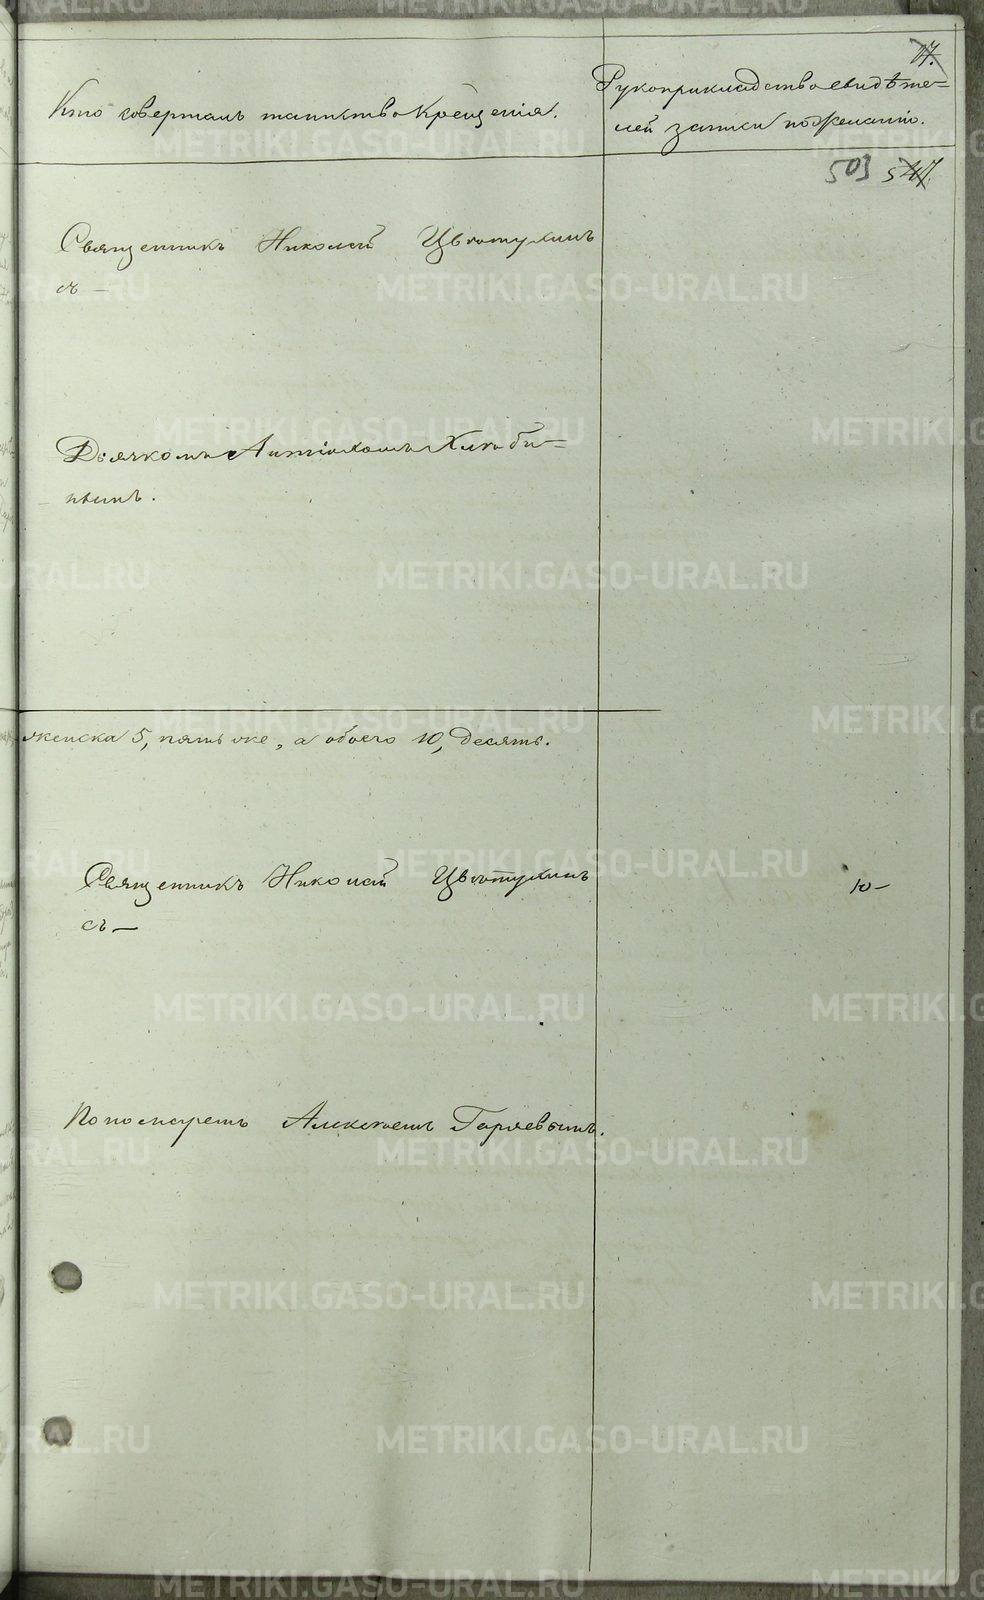 17.
Кто совершалъ таинство Крещенія.
Рукоприкладство свидѣте-
лей записи по желанію.
503 547.
Священникъ Николай Цвѣтухинъ
съ —
Дьячкомъ Антіохомъ
нымъ.
женска 5, пять же, а обоего 10, десять.
Священникъ Николай Цвѣтухинъ
съ —
10 —
Пономаремъ Алексѣемъ Гаряевымъ.
METRIKI.GASO-URAL.RU